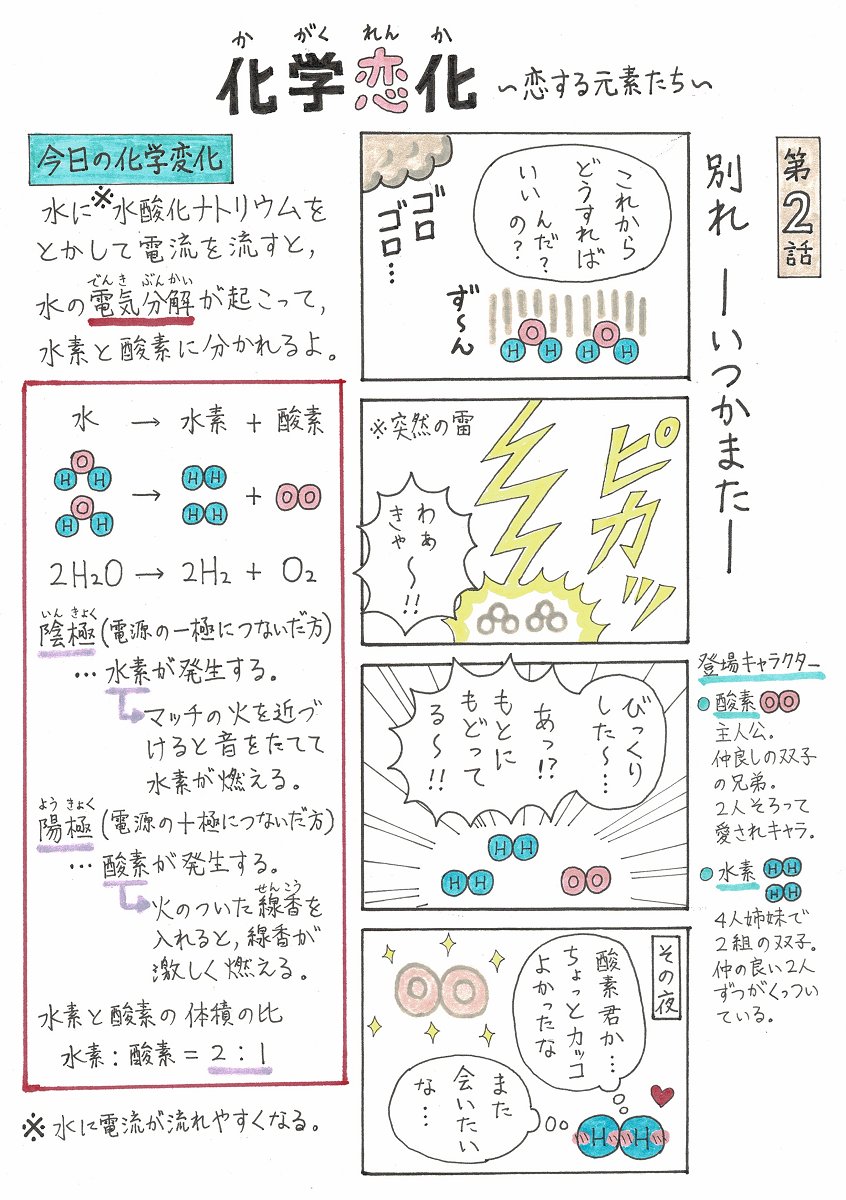 か がく れん か
化学恋化 ～恋する元素たち～
第2話
別れ ―いつかまた―
今日の化学変化
水に※水酸化ナトリウムを
とかして電流を流すと，
でんき ぶんかい
水の電気分解が起こって，
水素と酸素に分かれるよ。
水 → 水素 + 酸素
O O
H H H H → HH HH + OO
2H₂O → 2H₂ + O₂
いん きょく
陰極(電源の−極につないだ方)
…水素が発生する。
マッチの火を近づ
けると音をたてて
水素が燃える。
よう きょく
陽極(電源の+極につないだ方)
…酸素が発生する。
せんこう
火のついた線香を
入れると，線香が
激しく燃える。
水素と酸素の体積の比
水素：酸素 = 2：1
※水に電流が流れやすくなる。
これから
どうすれば
いいんだ？
の？
ゴロ
ゴロ…
ず～ん
O O
H H H H
※突然の雷
ピカッ
わぁ
きゃ
～!!
びっくり
した～…
あっ!?
もとに
もどって
る～!!
HH
HH OO
その夜
酸素君か…
ちょっとカッコ
よかったな
また
会いたい
な…
OO
HH
登場キャラクター
酸素 OO
主人公。
仲良しの双子
の兄弟。
2人そろって
愛されキャラ。
水素 HH
HH
4人姉妹で
2組の双子。
仲の良い2人
ずつがくっつい
ている。